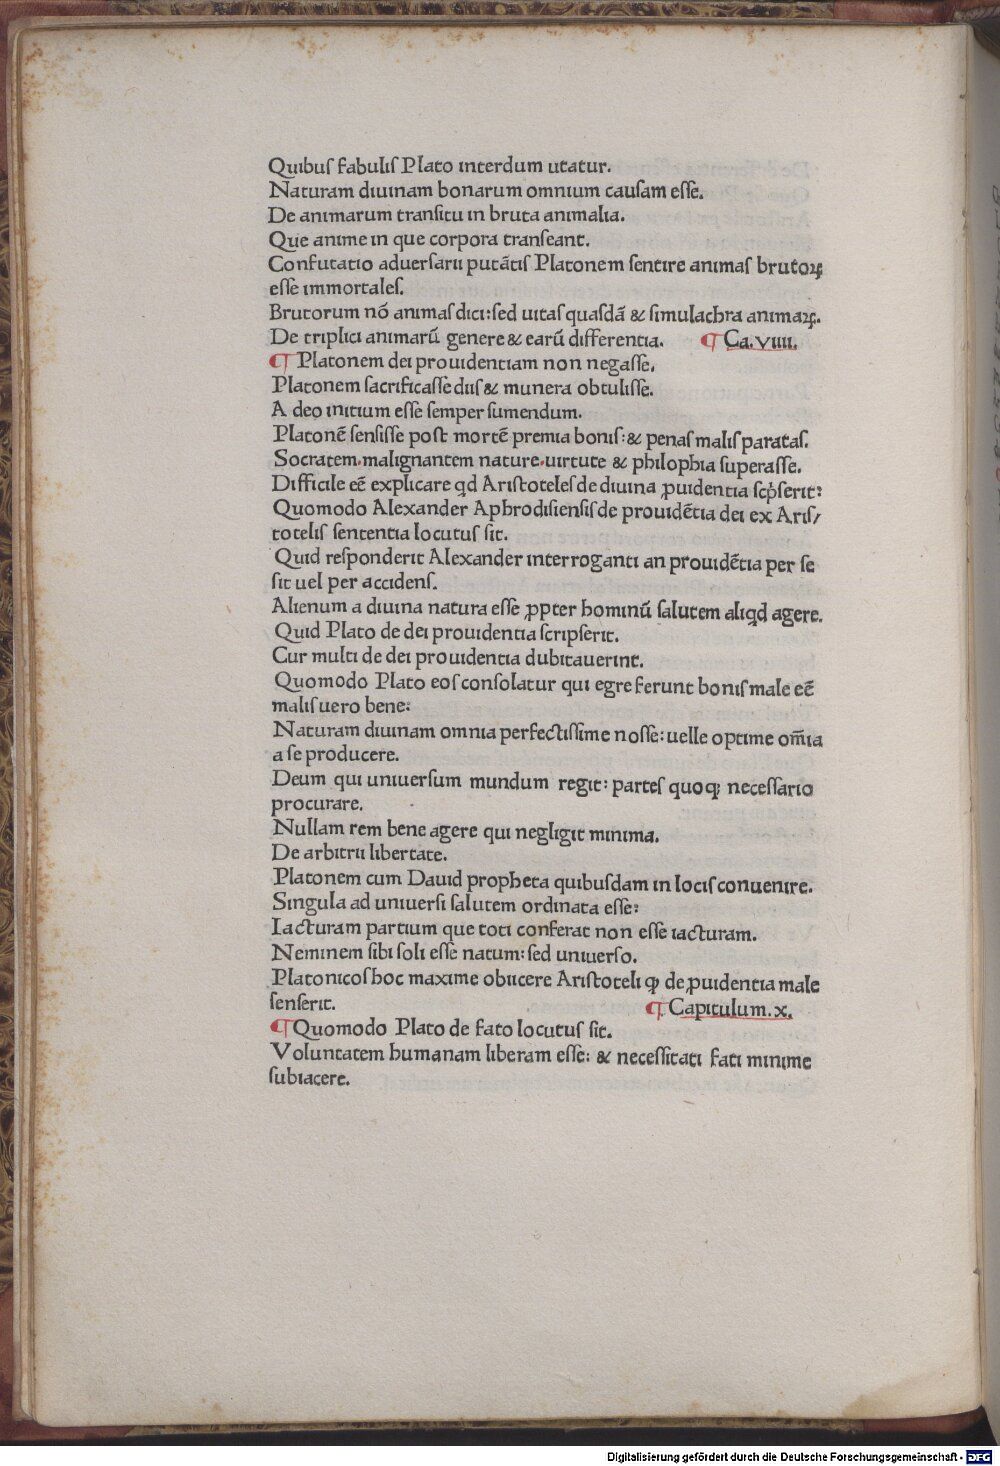 Quibuſ fabuliſ Plato interdum utatur.
Naturam diuinam bonarum omnium cauſam eſſe.
De animarum tranſitu in bruta animalia.
Que anime in que corpora tranſeant.
Confutatio aduerſarii putãtiſ Platonem ſentire animaſ brutoꝝ
eſſe immortaleſ.
Brutorum nõ animaſ dici: ſed uitaſ quaſdã & ſimulachra animaꝝ.
De triplici animarũ genere & earũ differentia. ¶ Ca. VIIII.
¶ Platonem dei prouidentiam non negaſſe.
Platonem ſacrificaſſe diiſ & munera obtuliſſe.
A deo initium eſſe ſemper ſumendum.
Platonẽ ſenſiſſe poſt mortẽ premia boniſ: & penaſ maliſ parataſ.
Socratem malignantem nature uirtute & philoſophia ſuperaſſe.
Difficile eẽ explicare qd Ariſtoteleſ de diuina ꝓuidentia ſcp̃ſerit:
Quomodo Alexander Aphrodiſienſiſ de prouidẽtia dei ex Ariſ/
toteliſ ſententia locutuſ ſit.
Quid reſponderit Alexander interroganti an prouidẽtia per ſe
ſit uel per accidenſ.
Alienum a diuina natura eſſe ꝓpter hominũ ſalutem aliqd agere.
Quid Plato de dei prouidentia ſcripſerit.
Cur multi de dei prouidentia dubitauerint.
Quomodo Plato eoſ conſolatur qui egre ferunt boniſ male eẽ
maliſ uero bene:
Naturam diuinam omnia perfectiſſime noſſe: uelle optime om̃ia
a ſe producere.
Deum qui uniuerſum mundum regit: parteſ quoqꝫ neceſſario
procurare.
Nullam rem bene agere qui negligit minima.
De arbitrii libertate.
Platonem cum Dauid propheta quibuſdam in lociſ conuenire.
Singula ad uniuerſi ſalutem ordinata eſſe:
Iacturam partium que toti conferat non eſſe iacturam.
Neminem ſibi ſoli eſſe natum: ſed uniuerſo.
Platonicoſ hoc maxime obiicere Ariſtoteli ꝙ de ꝓuidentia male
ſenſerit. ¶ Capitulum. x.
¶ Quomodo Plato de fato locutuſ ſit.
Voluntatem humanam liberam eſſe: & neceſſitati fati minime
ſubiacere.
Digitalisierung gefördert durch die Deutsche Forschungsgemeinschaft - DFG